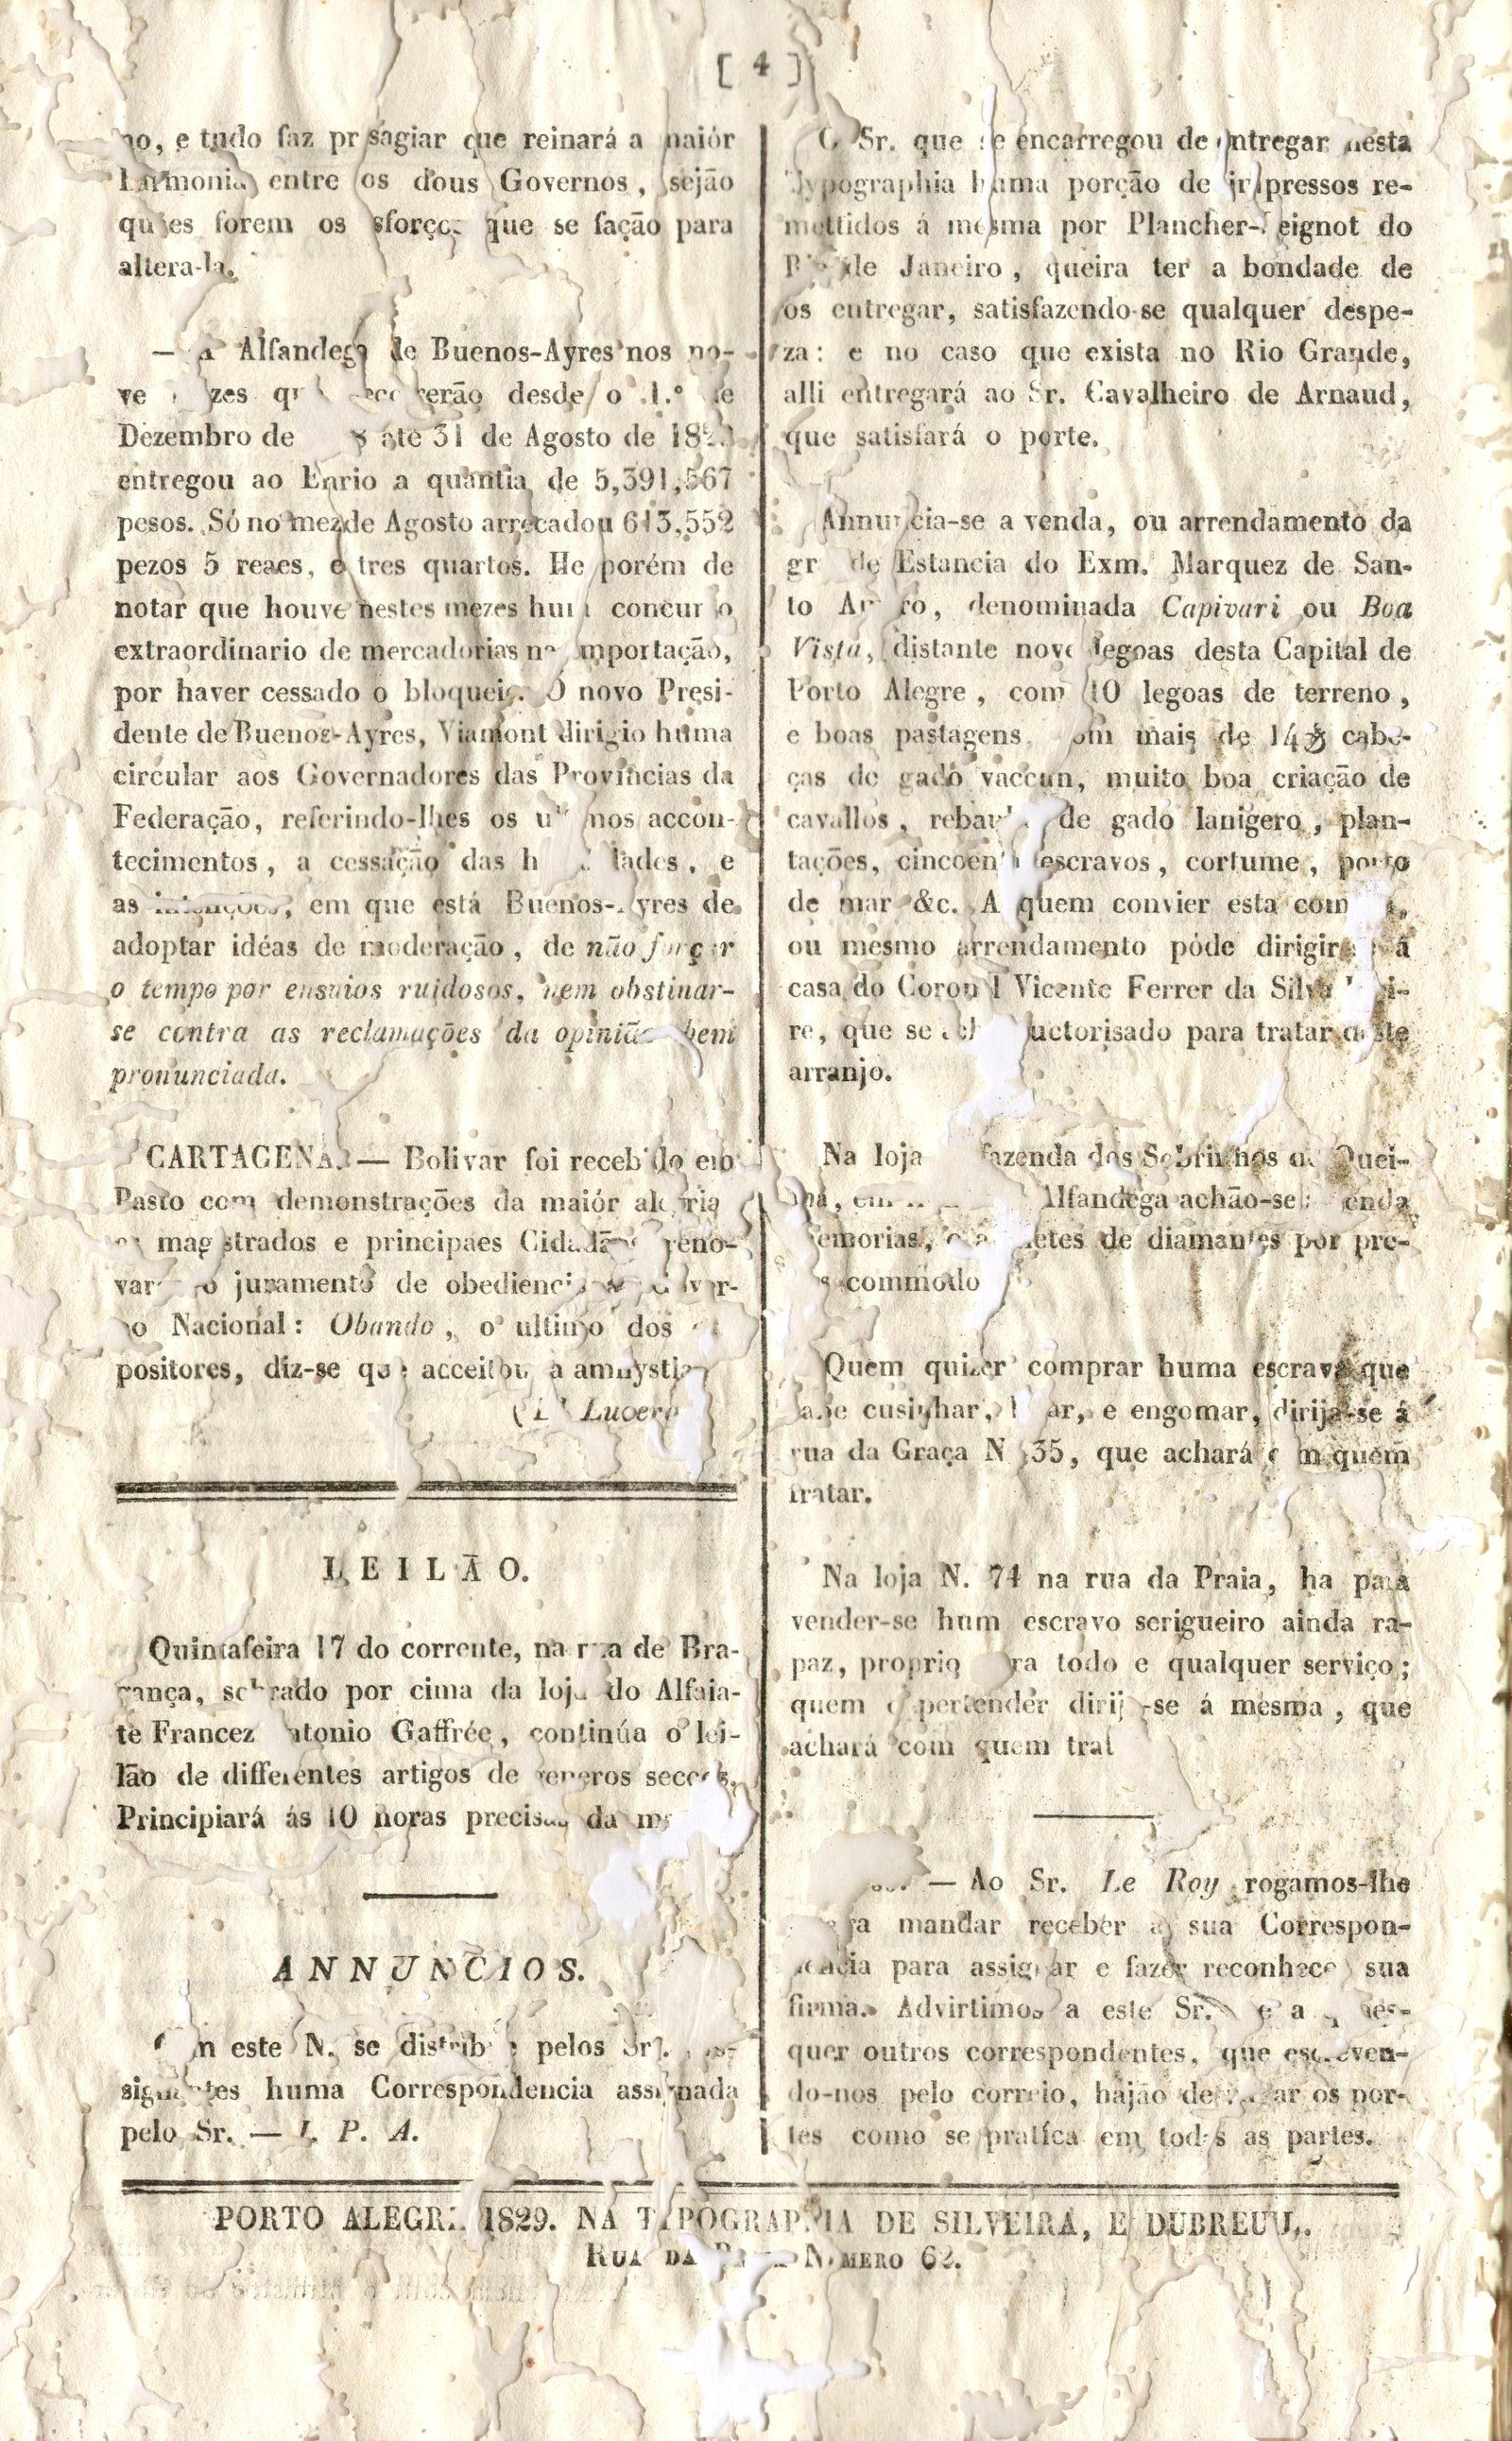 [ 4 ]
e tudo faz que reinará a
entre os dous Governos, sejão
forem os que se fação para
altera-la.
— A Alfandega de Buenos-Ayres nos no-
ve desde o 1.º de
Dezembro de até 31 de Agosto de
entregou ao a quantia de 5,391,567
pesos. Só no mez de Agosto arrecadou 613,552
pezos 5 reaes, e tres quartos. He porém de
notar que houve nestes mezes hum
extraordinario de mercadorias na importação,
por haver cessado o bloqueio. O novo Presi-
dente de Buenos-Ayres, Viamont dirigio huma
circular aos Governadores das Provincias da
Federação, referindo-lhes os accon-
tecimentos, a cessação das e
as em que está Buenos-Ayres de
adoptar idéas de moderação, de não forçar
o tempo por ensaios ruidosos, nem obstinar-
se contra as reclamações da opinião bem
pronunciada.
CARTAGENA. — Bolivar foi recebido em
Pasto com demonstrações da maiór alegria
magistrados e principaes reno-
juramento de obediencia
Nacional: Obando, o ultimo dos
positores, diz-se que acceitou a amnystia
Lucero
LEILÃO.
Quintafeira 17 do corrente, na rua de Bra-
gança, sobrado por cima da loja do Alfaia-
te Francez Antonio Gaffrée, continúa o lei-
lão de differentes artigos de generos seccos.
Principiará ás 10 horas precisas da
ANNUNCIOS.
Com este N. se distribue pelos Srs.
signantes huma Correspondencia assignada
pelo Sr. — I. P. A.
O Sr. que se encarregou de entregar nesta
Typographia huma porção de impressos re-
mettidos á mesma por Plancher-Seignot do
Rio de Janeiro, queira ter a bondade de
os entregar, satisfazendo-se qualquer despe-
za: e no caso que exista no Rio Grande,
alli entregará ao Sr. Cavalheiro de Arnaud,
que satisfará o porte.
Annuncia-se a venda, ou arrendamento da
grande Estancia do Exm. Marquez de San-
to Amaro, denominada Capivari ou Boa
Vista, distante nove legoas desta Capital de
Porto Alegre, com 10 legoas de terreno,
e boas pastagens com mais de cabe-
ças de gado vaccun, muito boa criação de
cavallos, de gado lanigero, plan-
tações, cincoenta escravos, cortume, porto
de mar &c. A quem convier esta
ou mesmo arrendamento póde á
casa do Coronel Vicente Ferrer da Silva
re, que se acha auctorisado para tratar deste
arranjo.
Na loja fazenda dos Sobrinhos
Alfandega achão-se
de diamantes por pre-
commodo
Quem quizer comprar huma escrava que
sabe cusinhar, lavar, e engomar, dirija-se á
rua da Graça N 35, que achará com quem
tratar.
Na loja N. 74 na rua da Praia, ha para
vender-se hum escravo serigueiro ainda ra-
paz, proprio para todo e qualquer serviço;
quem o pertender dirija-se á mesma, que
achará com quem
— Ao Sr. Le Roy rogamos-lhe
mandar receber a sua Correspon-
dencia para assignar e fazer reconhecer sua
firma. Advirtimos a este Sr. e a
quer outros correspondentes, que escreven-
do-nos pelo correio, hajão de pagar os por-
tes como se pratíca em todas as partes.
PORTO ALEGRE 1829. NA TYPOGRAPHIA DE SILVEIRA, E DUBREUIL.
RUA DA NUMERO 62.